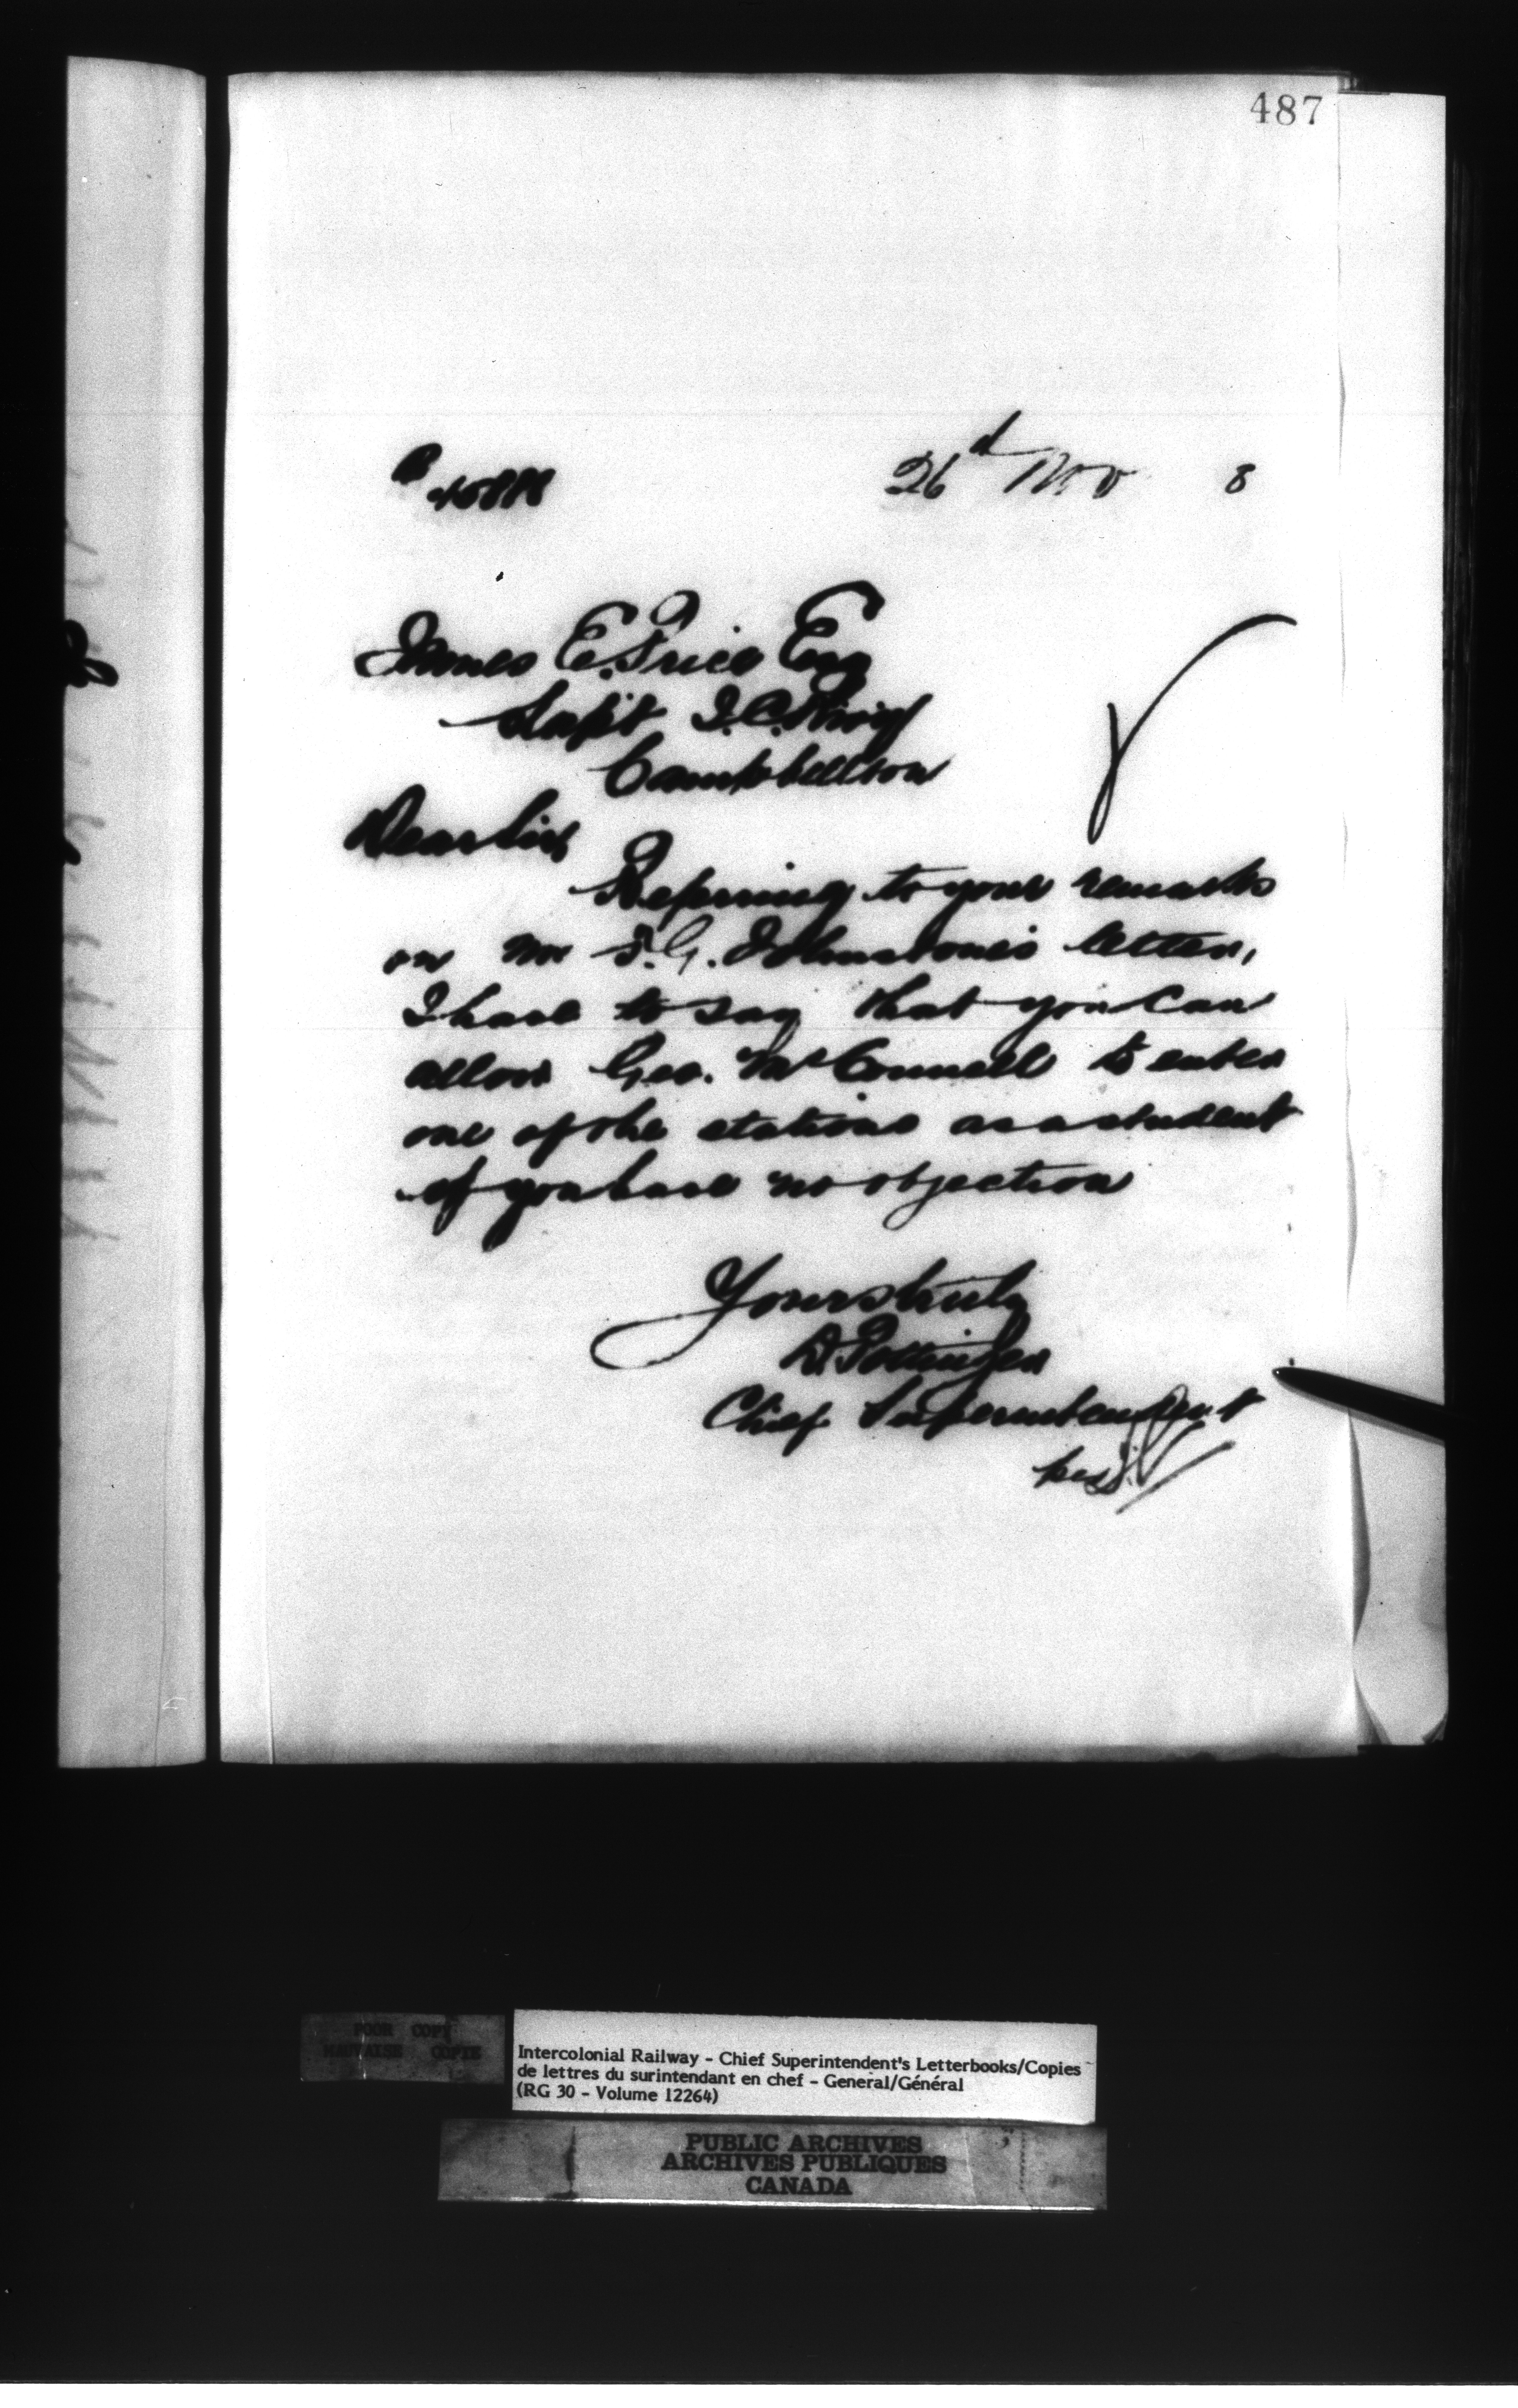 487
26d Nov 8
James E. Price Esq
Supt I.C. Rwy
Campbellton
Dear Sir
Referring to your remarks
on Mr T. G. Johnstone's letter,
I have to say that you can
allow Geo. McConnell to enter
one of the stations as a student
if you have no objection
Yours truly
D. Pottinger
Chief Superintendent
per
POOR COPY
MAUVAISE COPIE
Intercolonial Railway - Chief Superintendent's Letterbooks/Copies
de lettres du surintendant en chef - General/Général
(RG 30 - Volume 12264)
PUBLIC ARCHIVES
ARCHIVES PUBLIQUES
CANADA